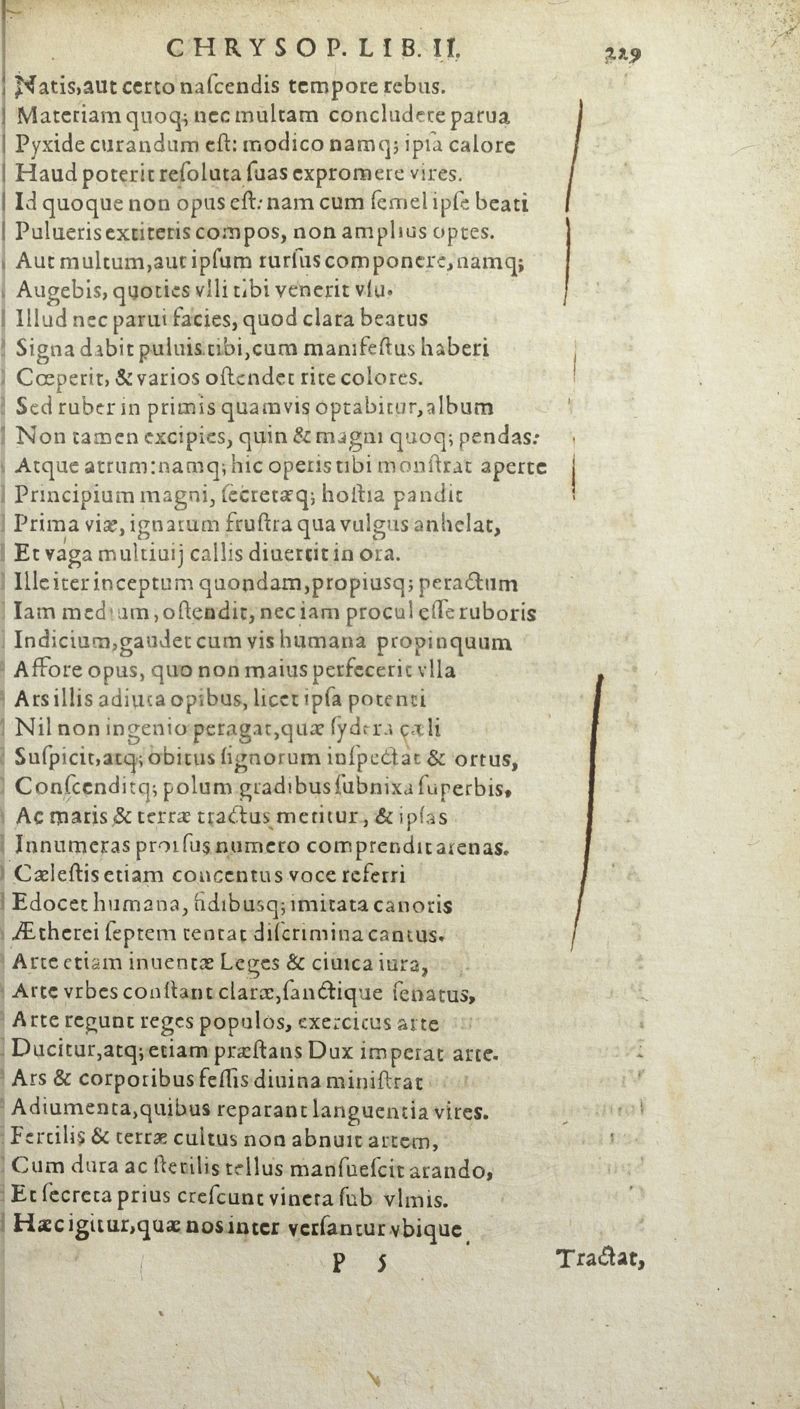 CHRYSOP. LIB. II. 229
Natis, aut certo naſcendis tempore rebus.
Materiam quoq; nec multam concludere parua
Pyxide curandum eſt: modico namq; ipſa calore
Haud poterit reſoluta ſuas expromere vires.
Id quoque non opus eſt: nam cum ſemel ipſe beati
Pulueris extiteris compos, non amplius optes.
Aut multum, aut ipſum rurſus componere, namq;
Augebis, quoties vlli tibi venerit vſu.
Illud nec parui facies, quod clara beatus
Signa dabit puluis tibi, cum manifeſtus haberi
Cœperit, & varios oſtendet rite colores.
Sed ruber in primis quamvis optabitur, album
Non tamen excipies, quin & magni quoq; pendas:
Atque atrum: namq; hic operis tibi monſtrat aperte
Principium magni, ſecretæq; hoſtia pandit
Prima viæ, ignarum fruſtra qua vulgus anhelat,
Et vaga multiuij callis diuertit in ora.
Ille iter inceptum quondam, propiusq; peractum
Iam medium, oſtendit, nec iam procul eſſe ruboris
Indicium, gaudet cum vis humana propinquum
Affore opus, quo non maius perfecerit vlla
Ars illis adiuta opibus, licet ipſa potenti
Nil non ingenio peragat, quæ ſydera cæli
Suſpicit, atq; obitus ſignorum inſpectat & ortus,
Conſcenditq; polum gradibus ſubnixa ſuperbis,
Ac maris & terræ tractus metitur, & ipſas
Innumeras prorſus numero comprendit arenas.
Cæleſtis etiam concentus voce referri
Edocet humana, fidibusq; imitata canoris
Ætherei ſeptem tentat diſcrimina cantus.
Arte etiam inuentæ Leges & ciuica iura,
Arte vrbes conſtant claræ, ſanctique ſenatus,
Arte regunt reges populos, exercitus arte
Ducitur, atq; etiam præſtans Dux imperat arte.
Ars & corporibus feſſis diuina miniſtrat
Adiumenta, quibus reparant languentia vires.
Fertilis & terræ cultus non abnuit artem,
Cum dura ac ſterilis tellus manſueſcit arando,
Et ſecreta prius creſcunt vineta ſub vlmis.
Hæc igitur, quæ nos inter verſantur vbique
P 5 Tractat,